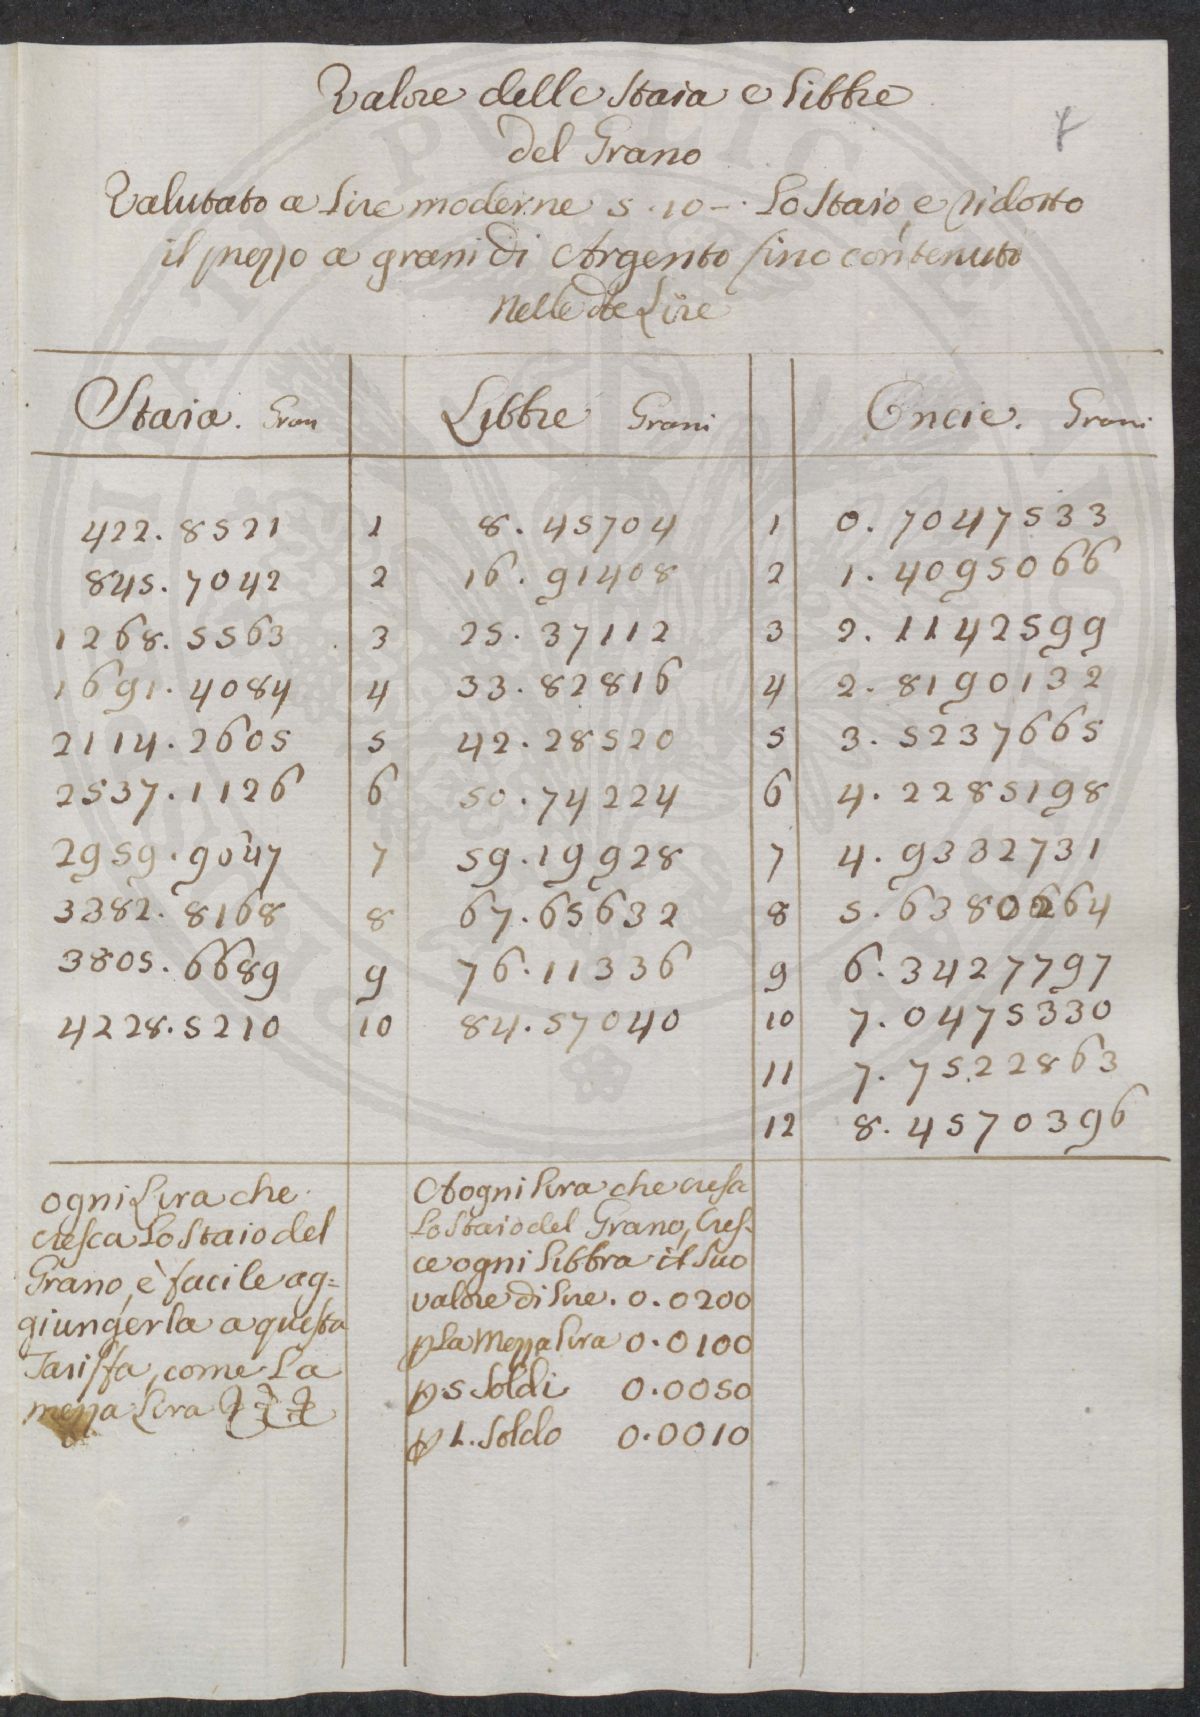 Valore delle Staia e Libbre
del Grano
Valutato a Lire moderne 5.10 –. Lo Staio, e ridotto
il prezzo a grani di Argento fino contenuto
nelle dte Lire
Staia. Gran Libbre Grani Oncie. Grani
422.8521 1 8.45704 1 0.7047533
845.7042 2 16.91408 2 1.4095066
1268.5563 3 25.37112 3 2.1142599
1691.4084 4 33.82816 4 2.8190132
2114.2605 5 42.28520 5 3.5237665
2537.1126 6 50.74224 6 4.2285198
2959.9647 7 59.19928 7 4.9332731
3382.8168 8 67.65632 8 5.6380264
3805.6689 9 76.11336 9 6.3427797
4228.5210 10 84.57040 10 7.0475330
11 7.7522863
12 8.4570396
ogni Lira che
cresca Lo Staio del
Grano, è facile ag=
giungerla a questa
Tariffa, come La
mezza Lira
A ogni Lira che cresca
Lo Staio del Grano, Cres-
ce ogni Libbra il suo
valore di Lire. 0.0200
p La Mezza Lira 0.0100
p 5 Soldi 0.0050
p 1. Soldo 0.0010